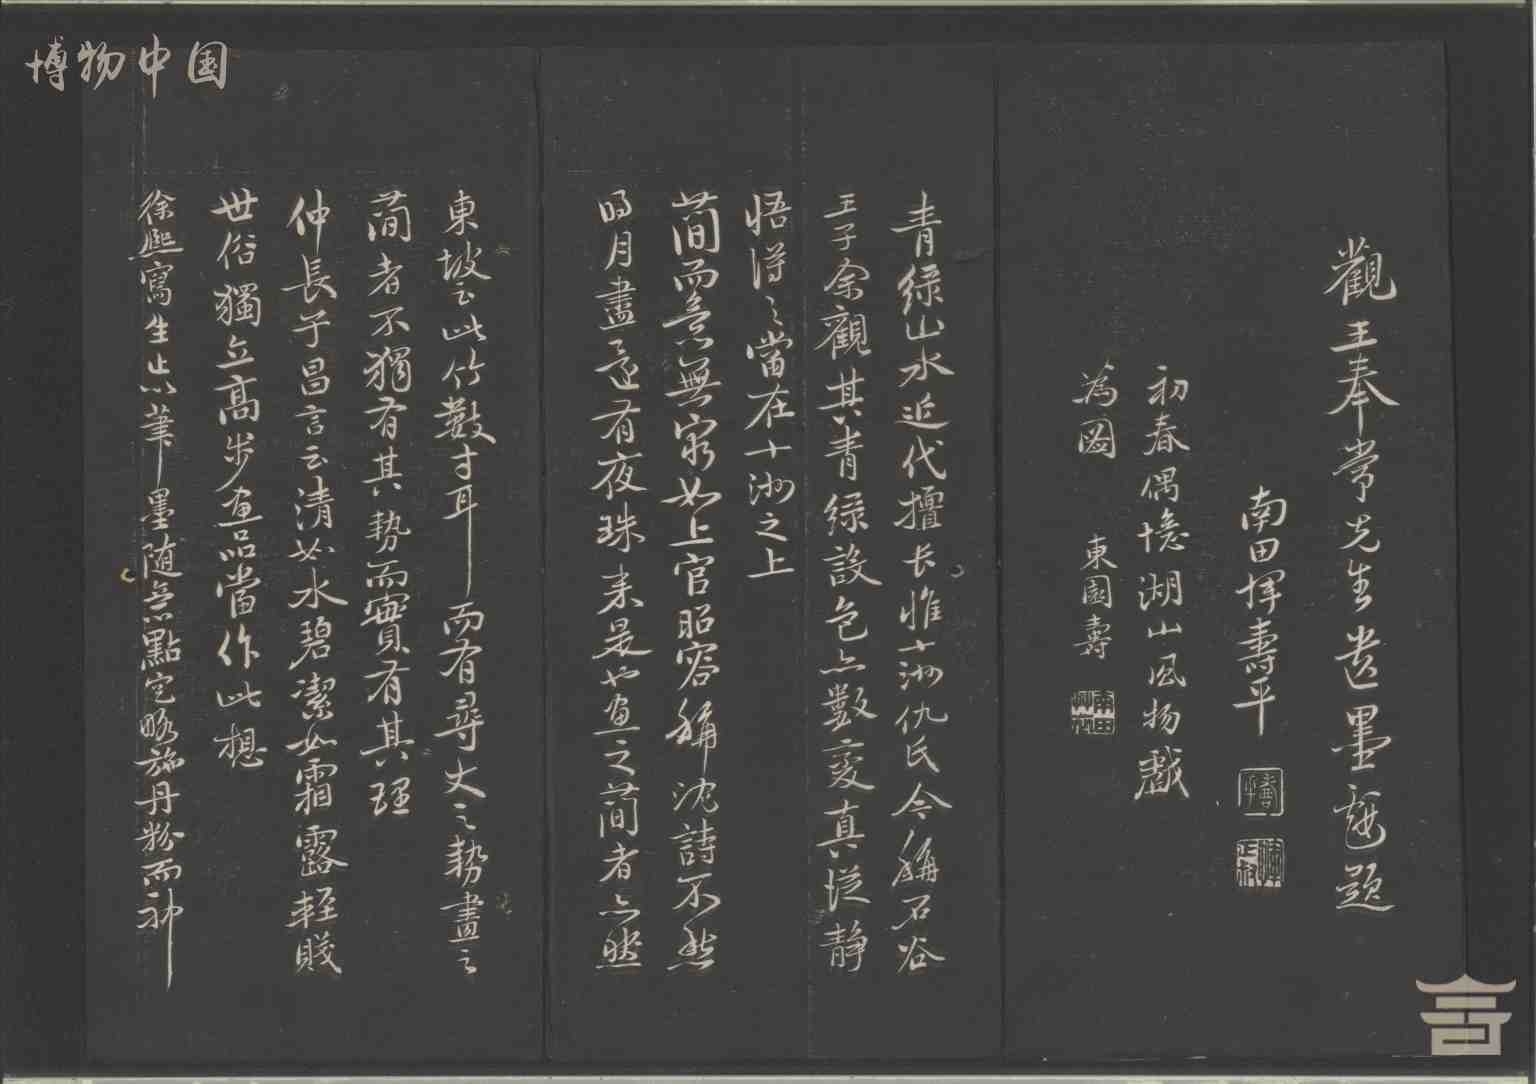 博物中国
觀王奉常先生遗墨輒題
南田惲壽平
初春偶憶湖山風物戲
為圖 東園壽
青绿山水近代擅长惟十洲仇氏今稱石谷
王子余觀其青绿設色亦數變真從静
悟得之當在十洲之上
蕳而意無窮如上官昭容稱沈詩不愁
明月盡還有夜珠来是也画之蕳者亦然
東坡云此竹數寸耳而有尋丈之勢畫之
蕳者不獨有其勢而實有其理
仲長子昌言云清如水碧潔如霜露輕賤
世俗獨立高步画品當作此想
徐熙寫生止以筆墨随意點定略施丹粉而神